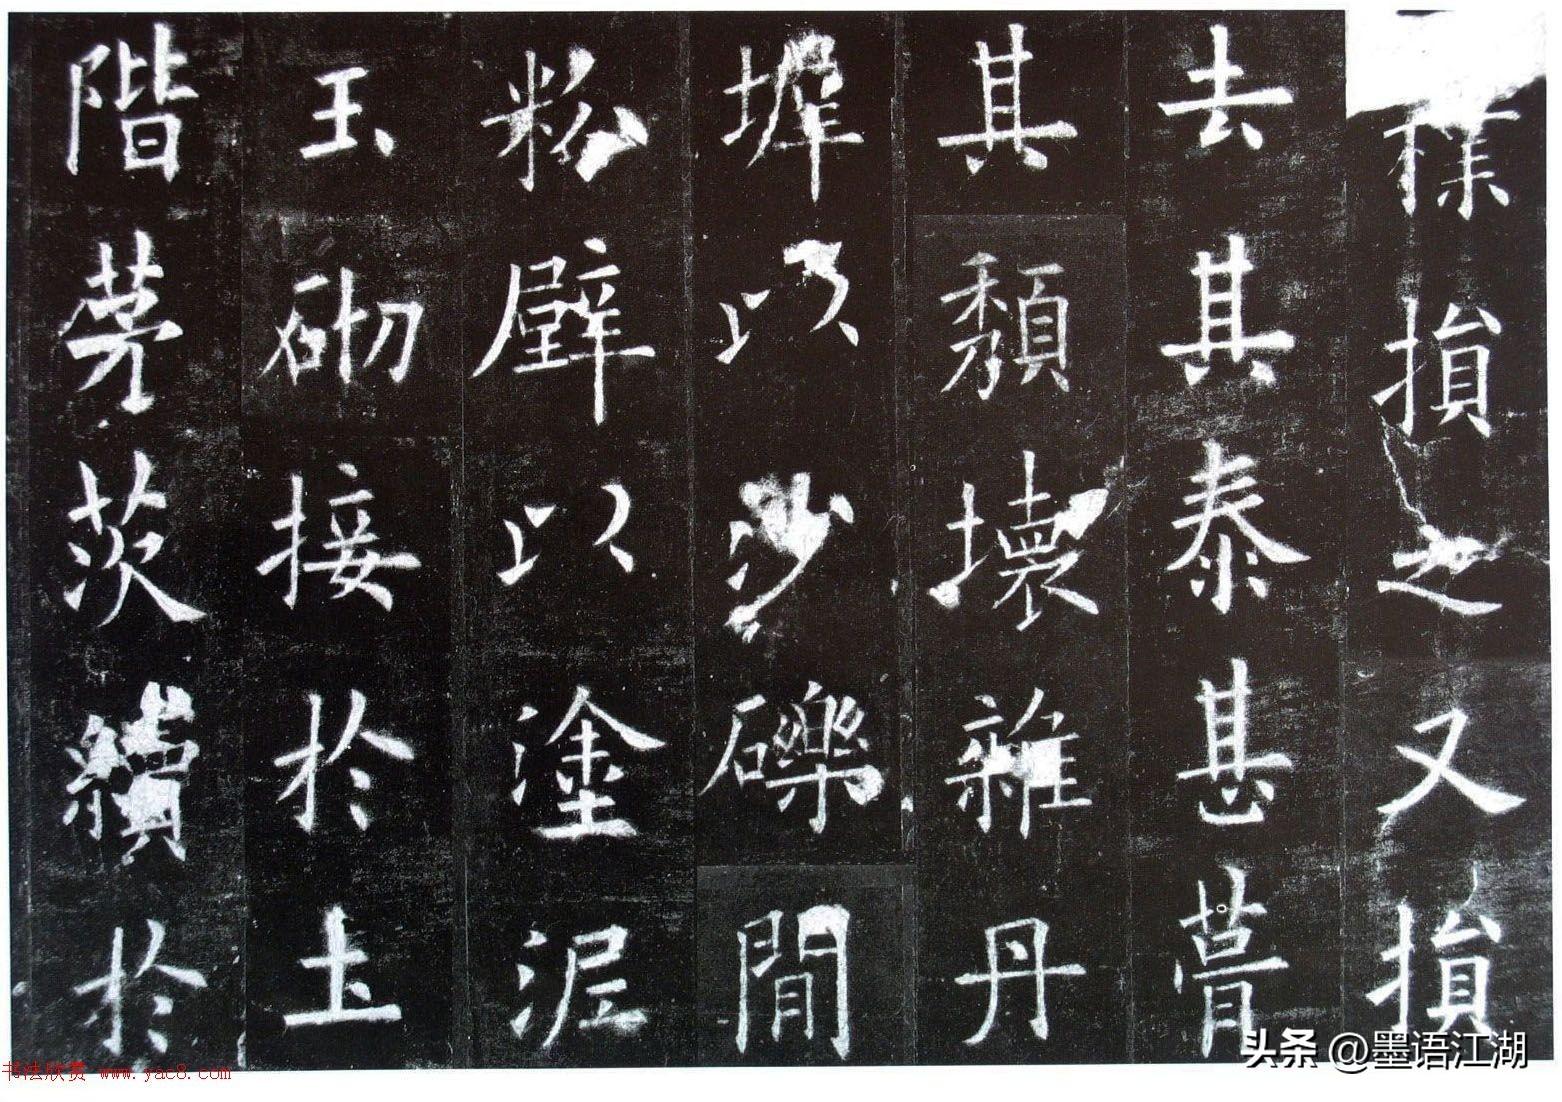 樸損之又損
去其泰甚葺
其頽壞雜丹
墀以沙礫間
粉壁以塗泥
玉砌接於土
階茅茨續於
头条 @墨语江湖
书法欣赏 www.yac8.com